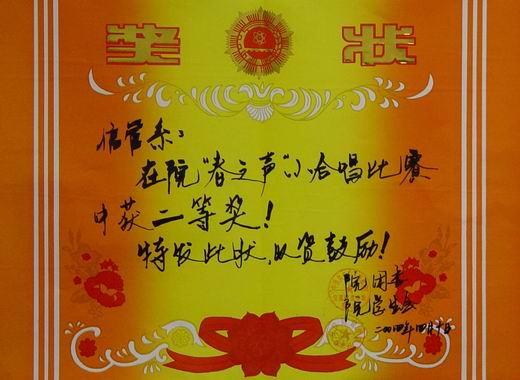 奖状
信管系：
在院"春之声"小合唱比赛
中获二等奖！
特发此状，以资鼓励！
院团委
院学生会
二〇〇四年四月十日